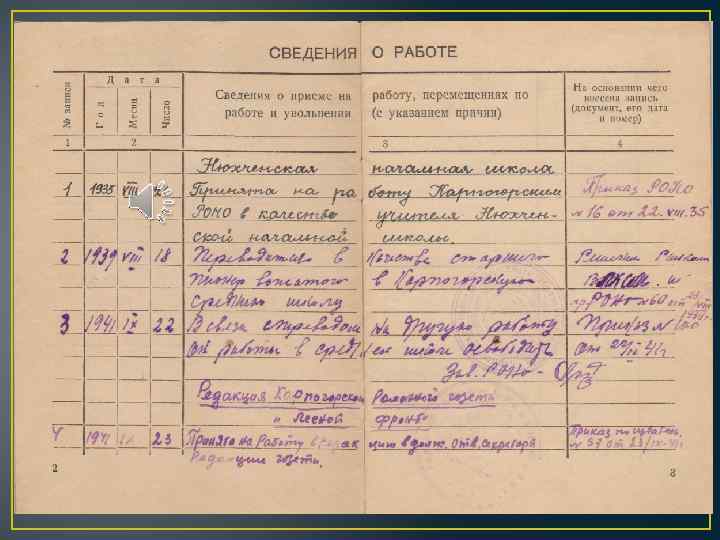 СВЕДЕНИЯ О РАБОТЕ
№ записи
Дата
Год
Месяц
Число
Сведения о приеме на работу, перемещениях по
работе и увольнении (с указанием причин)
На основании чего
внесена запись
(документ, его дата
и номер)
1 2 3 4
Нюхченская начальная школа
1 1935 VIII Принята на работу Карпогорским Приказ РОНО
РОНО в качестве учителя Нюхчен- № 16 от 22.VIII.35
ской начальной школы.
2 1939 VIII 18 Переведена в качестве старшего
пионервожатого в Карпогорскую
среднюю школу РОНО №60 от
3 1941 IX 22 В связи с переводом на другую работу Приказ №
от работы в освободить от
Зав. РОНО
Редакция Карпогорской Районной газеты
"Лесной фронт"
4 1941 IX 23 Принята на работу в должн. отв. секретаря Приказ по
Редакцию газеты. № 37 от 23/IX-41
2 3